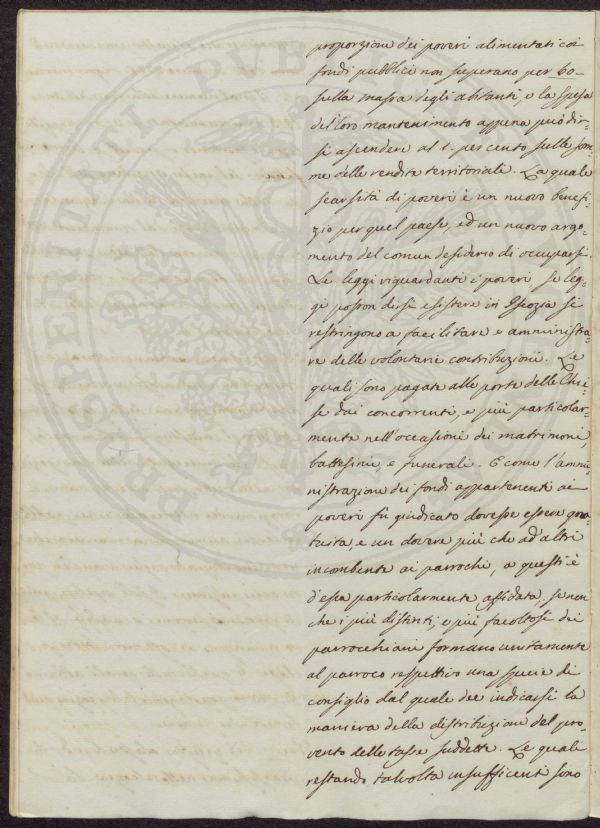 proporzione dei poveri alimentati coi
fondi pubblici non superano per 60=
sulla massa degli abitanti, e la spesa
del loro mantenimento appena può dir=
si ascendere al 1. per cento sulle som=
me delle rendite territoriale. La quale
scarsità di poveri è un nuovo benefi=
zio per quel paese, ed un nuovo argo=
mento del comun desiderio di occuparsi.
Le leggi riguardanti i poveri se leg=
gi posson dirsi esistere in Iscozia si
restringono a facilitare e amministra=
re delle volontarie contribuzioni. Le
quali sono pagate alle porte delle Chie=
se dai concorrenti, e più particolar=
mente nell'occasioni dei matrimoni,
battesimi, e funerali. E come l'ammi=
nistrazione dei fondi appartenenti ai
poveri fù giudicato dovesse essere gra=
tuita, e un dovere più che ad altri
incombente ai parrochi, a questi è
d'essa particolarmente affidata, se non
che i più distinti, e più facoltosi dei
parrocchiani formano unitamente
al parroco respettivo una specie di
consiglio dal quale dee indicarsi la
maniera della distribuzione del pro=
vento delle tasse suddette. Le quali
restando talvolta insufficenti sono
PROSPERITATI PVBLICAE